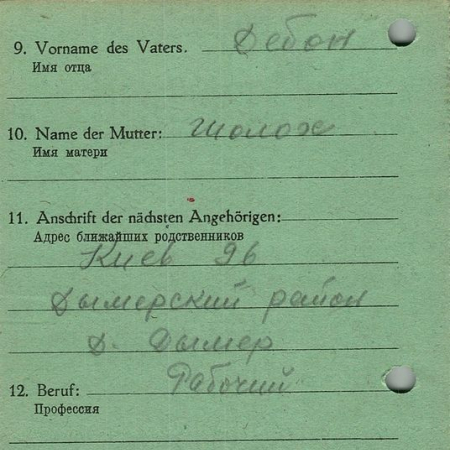 9. Vorname des Vaters. Дебон
Имя отца
10. Name der Mutter: Шолох
Имя матери
11. Anschrift der nächsten Angehörigen:
Адрес ближайших родственников
Киев 96
Дымерский район
д. Дымер
12. Beruf: Рабочий
Профессия